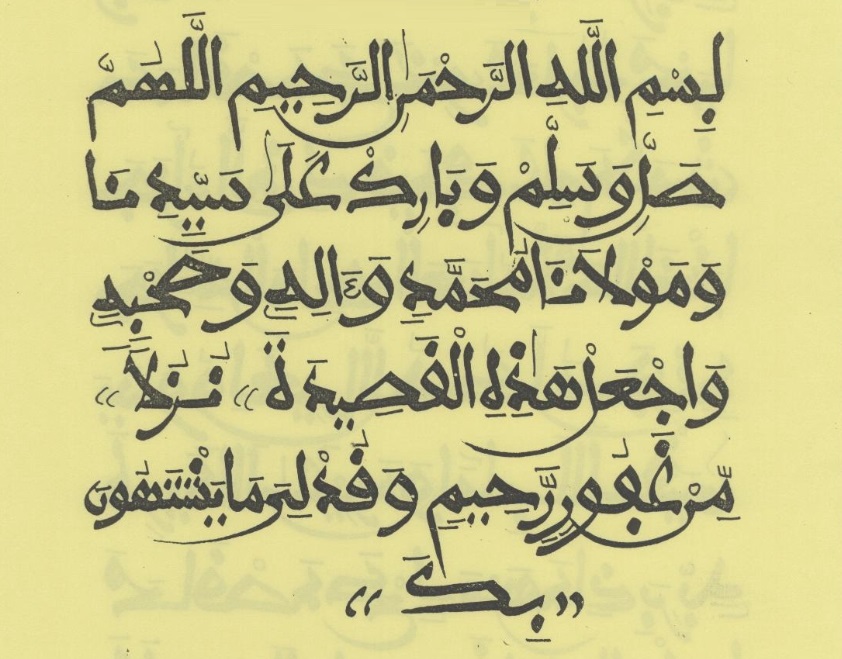 بِسْمِ اللَّهِ الرَّحْمَٰنِ الرَّحِيمِ اللَّهُمَّ
صَلِّ وَسَلِّمْ وَبَارِكْ عَلَىٰ سَيِّدِنَا
وَمَوْلَانَا مُحَمَّدٍ وَءَالِهِ وَصَحْبِهِ
وَاجْعَلْ هَٰذِهِ الْقَصِيدَةَ ,, نُزُلاً ,,
مِّنْ غَفُورٍ رَّحِيمٍ وَقُدْ لِيَ مَا يَشْتَهُونَ
,, بِكَ ,,